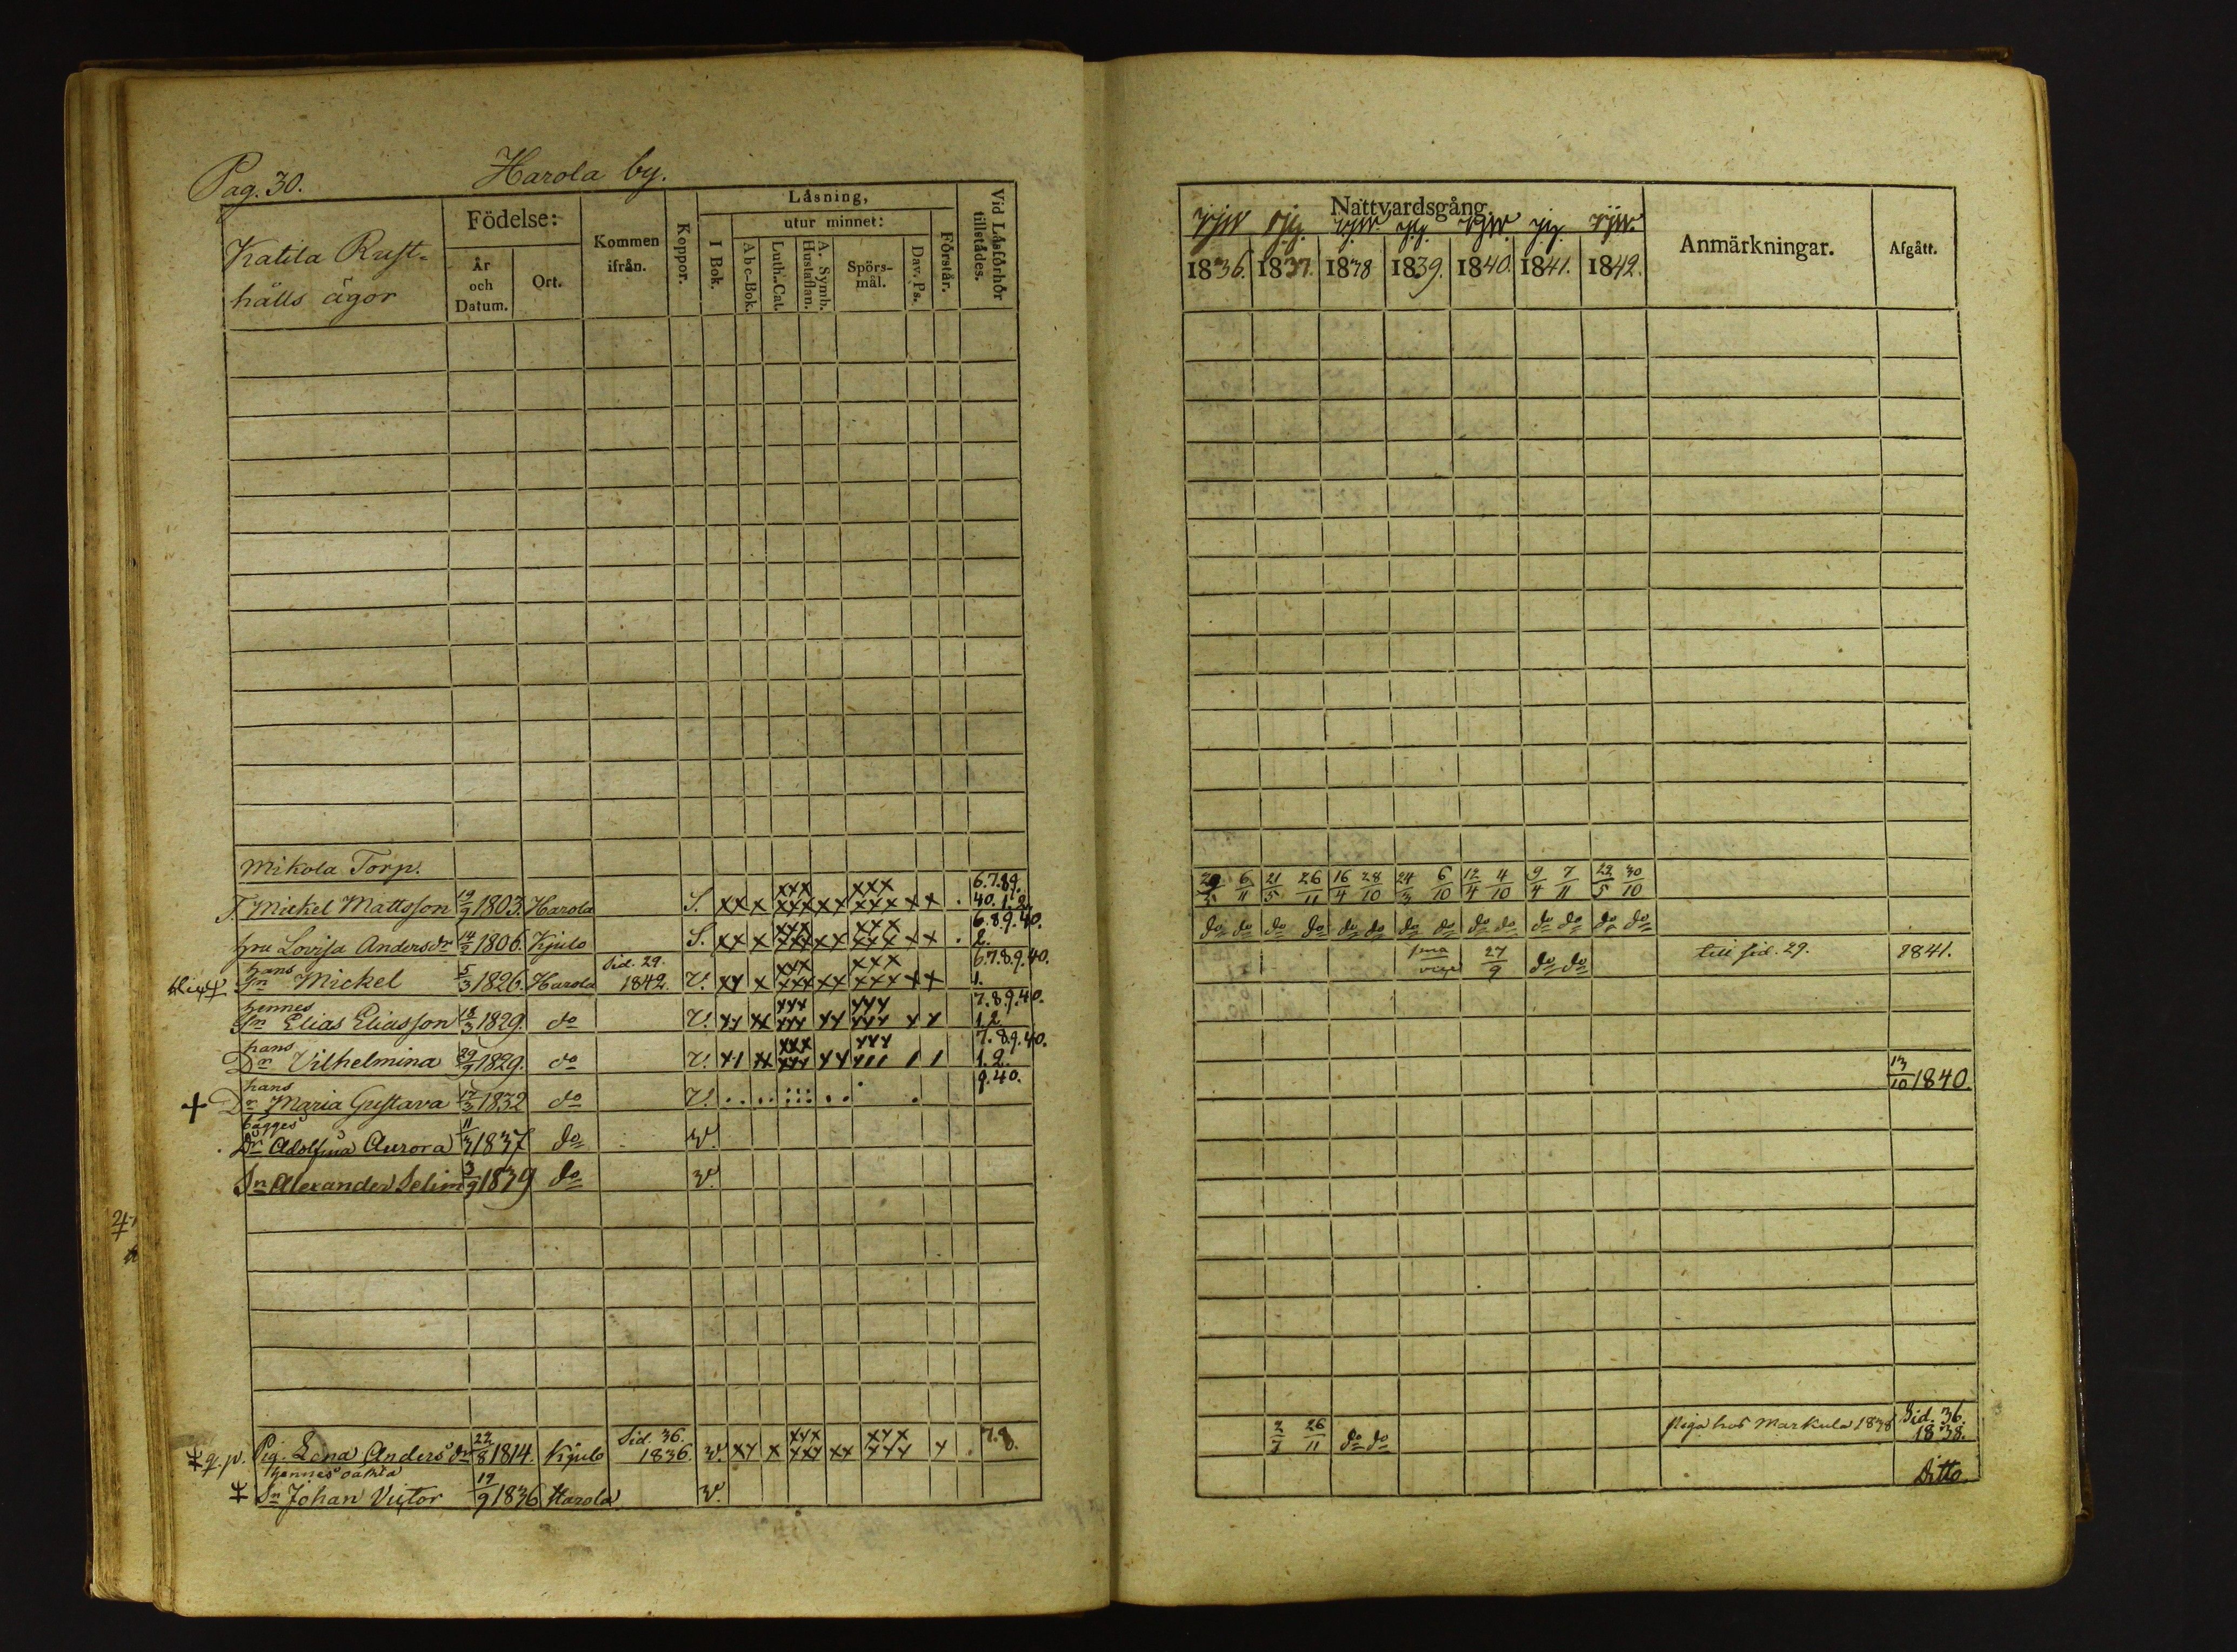 Pag. 30. Harola by.
Katila Rust-
hålls ägor
Födelse:
År och Datum.
Ort.
Kommen ifrån.
Koppor.
Läsning,
I Bok.
utur minnet:
Abc-Bok.
Luth. Cat.
A. Symb. Hustaflan.
Spörs-mål.
Dav. Ps.
Förstår.
Vid Läsförhör tillstädes.
Nattvardsgång.
1836. 1837. 1838 1839. 1840. 1841. 1842.
Anmärkningar.
Afgått.
Mikola Torp.
T. Mickel Mattsson 19/9 1803. Harola S. 6.7.8.9. 40. 1. 2. 6/11 21/5 26/11 16/4 28/10 24/3 6/10 12/4 4/10 9/4 7/11 22/5 30/10
hru Lovisa Andersdr 14/2 1806. Kjulo S. 6.8.9.40. 2. do do do do do do do do do do do do do do
hans Sn Mickel 5/3 1826. Harola Sid. 29. 1842. V. 6.7.8.9.40. 1. 27/9 do do till sid. 29. 1841.
hennes Sn Elias Eliasson 18/3 1829. do V. 7.8.9.40. 1.2
hans Dr Vilhelmina 29/9 1829. do V. 7.8.9.40. 1.2.
hans Dr Maria Gustava 17/3 1832 do V. 9.40. 13/10 1840.
bägges Dr Adolfina Aurora 11/3 1837 do V.
Sn Alexander Selim 3/9 1839 do V.
Pig. Lena Andersdr 22/8 1814. Kjulo Sid. 36. 1836. V. 7.8. 26/11 do do piga hos Markula 1838 Sid. 36. 1838.
hennes oäkta Sn Johan Victor 19/9 1836 Harola V. Ditto